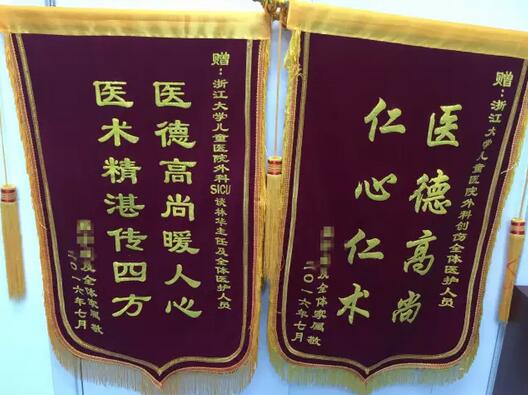 赠：浙江大学儿童医院外科
SICU谈林华主任及全体医护人员
医德高尚暖人心
医术精湛传四方
及全体家属敬
二〇一六年七月
赠：浙江大学儿童医院外科创伤全体医护人员
医德高尚
仁心仁术
及全体家属敬
二〇一六年七月